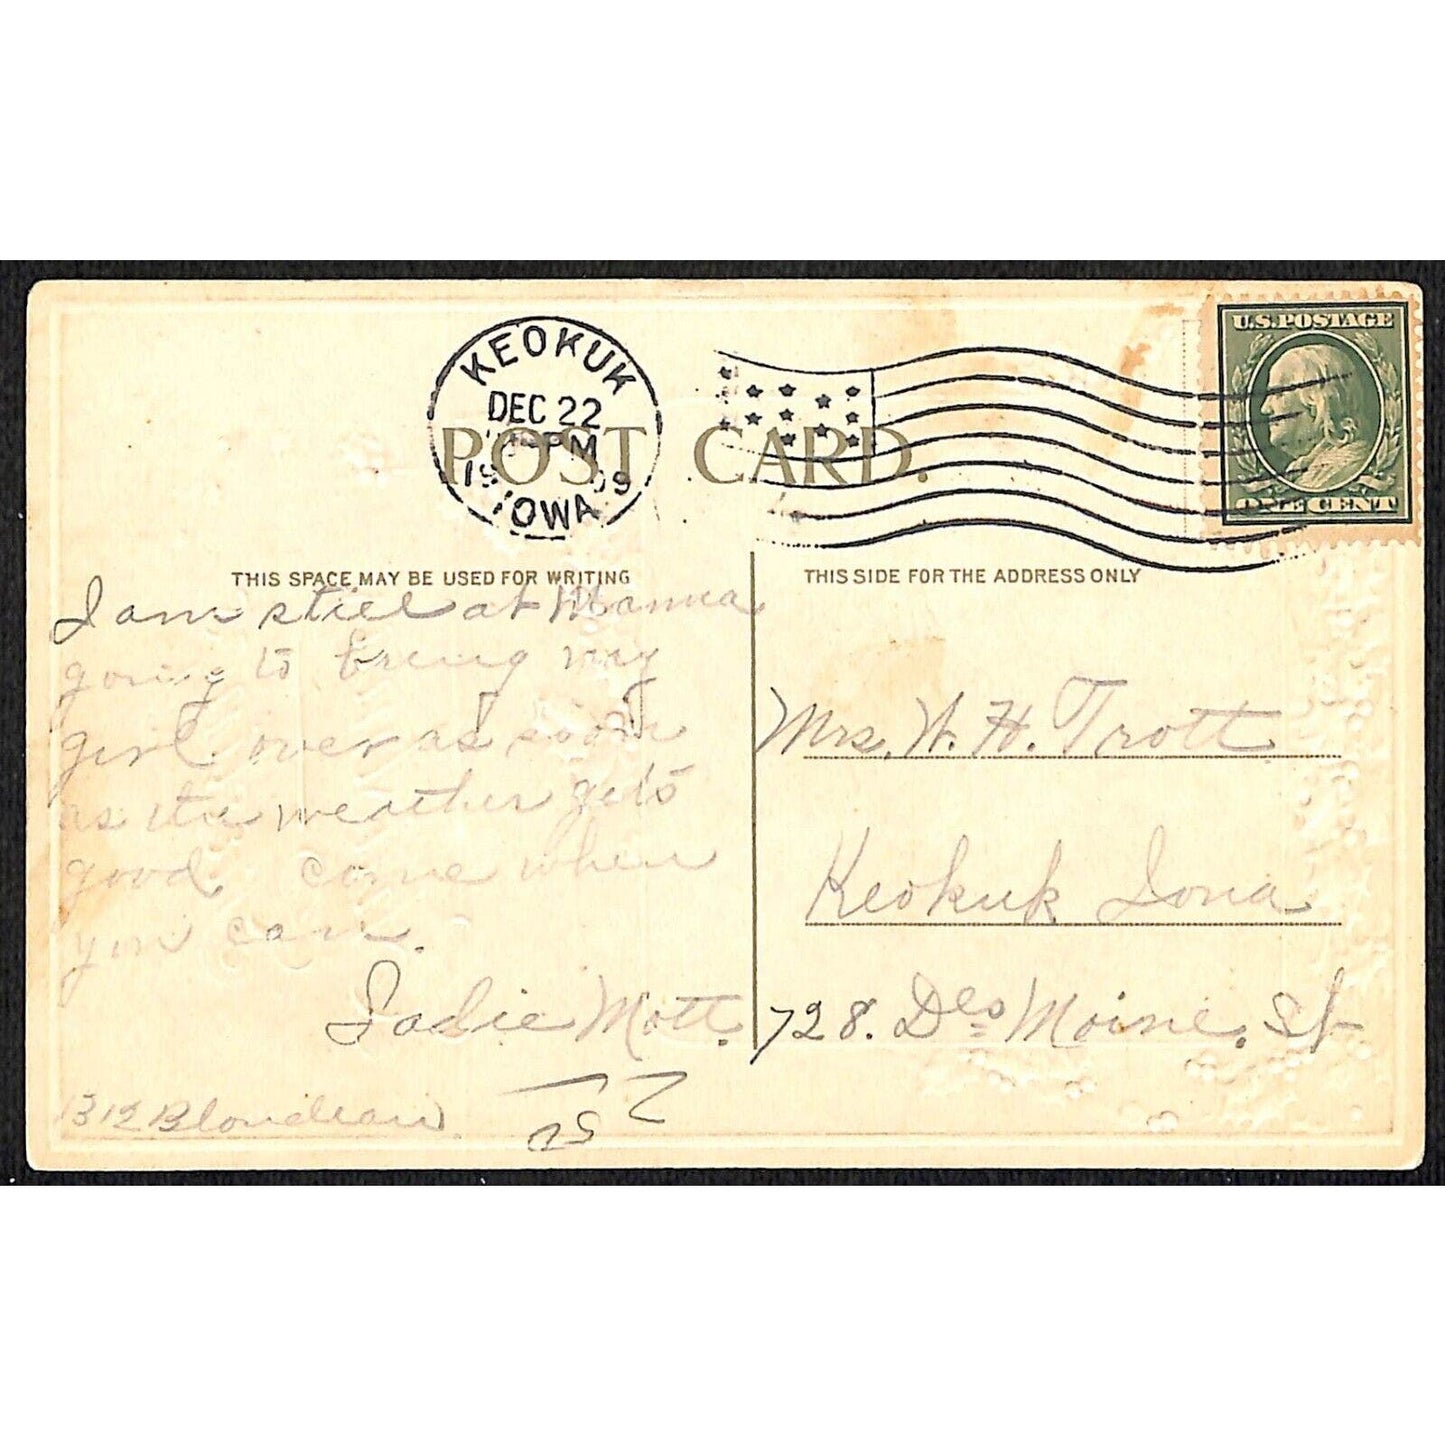 U.S. POSTAGE
KEOKUK
DEC 22
PM
1909
IOWA
POST CARD.
ONE CENT
THIS SPACE MAY BE USED FOR WRITING
THIS SIDE FOR THE ADDRESS ONLY
I am still at Mamma
going to bring my
girl over as soon
as the weather gets
good come when
you can.
Sadie Mott.
1312 Blondeau
Mrs. W. H. Trott
Keokuk Iowa
728. Des Moine. St